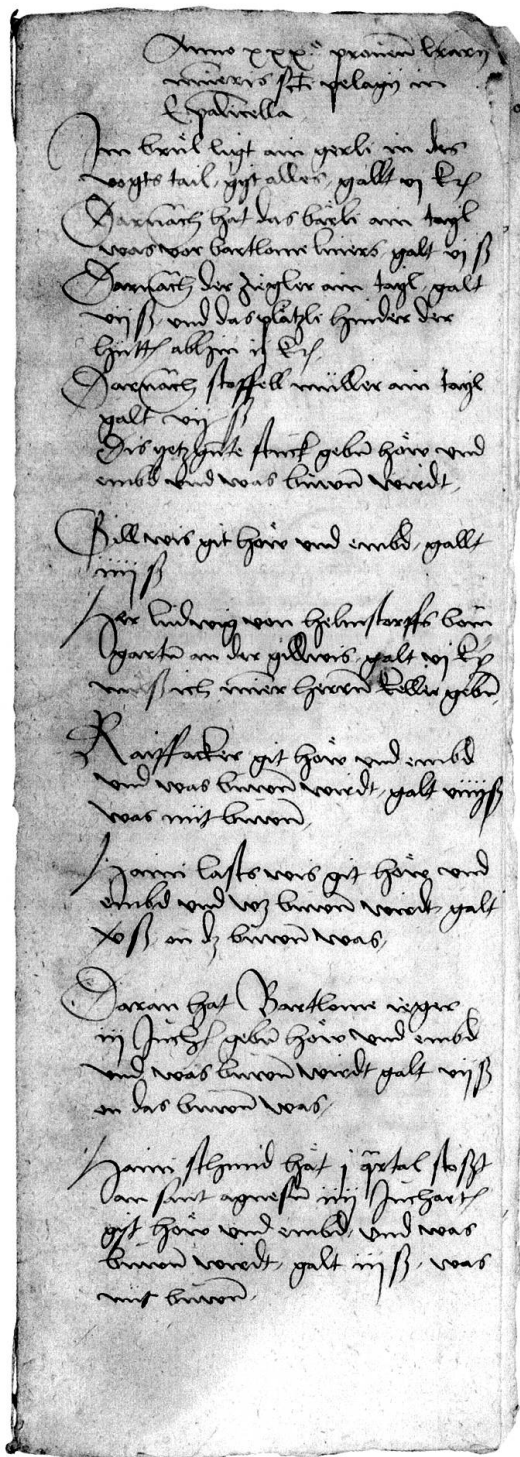 Anno xxx° provent
muneris sti pelagij in
Episcopalicella
Im brül ligt ain gerli in des
vogts tail, gyt alles, gallt vj kr
Darnach hat das bärli ain tayl
was vor bartlome liners, galt vj ß
Darnach der ziegler ain tayl, galt
vij ß, und das plätzli hinder der
hütt abhin ij kr
Darnach stoffell müller ain tayl
galt vij ß
Dis yetz gnte stuck gebn höw und
embd und was buwen wirdt,
Gillwis git höw und embd, gallt
iiij ß
Her ludwig von helmstorffs bom
garten an der gillwis, galt vj kr
mus ich miner herrn keller gebn,
Raiffacker git höw und embd
und was buwen wirdt, galt viiij ß
was nit buwen,
Haini lasts wis git höw und
embd und wz buwen wirdt, galt
xv ß, on dz buwen was,
Daran hat Bartlome jeger
iij Juchrt gebn höw und embd
und was buwen wirdt galt vij ß
on das buwen was,
Haini schmid hat j qrtal stoßt
an sant agnesen iiij Jucharte
gyt höw und embd, und was
buwen wirdt, galt iij ß, was
nit buwen,